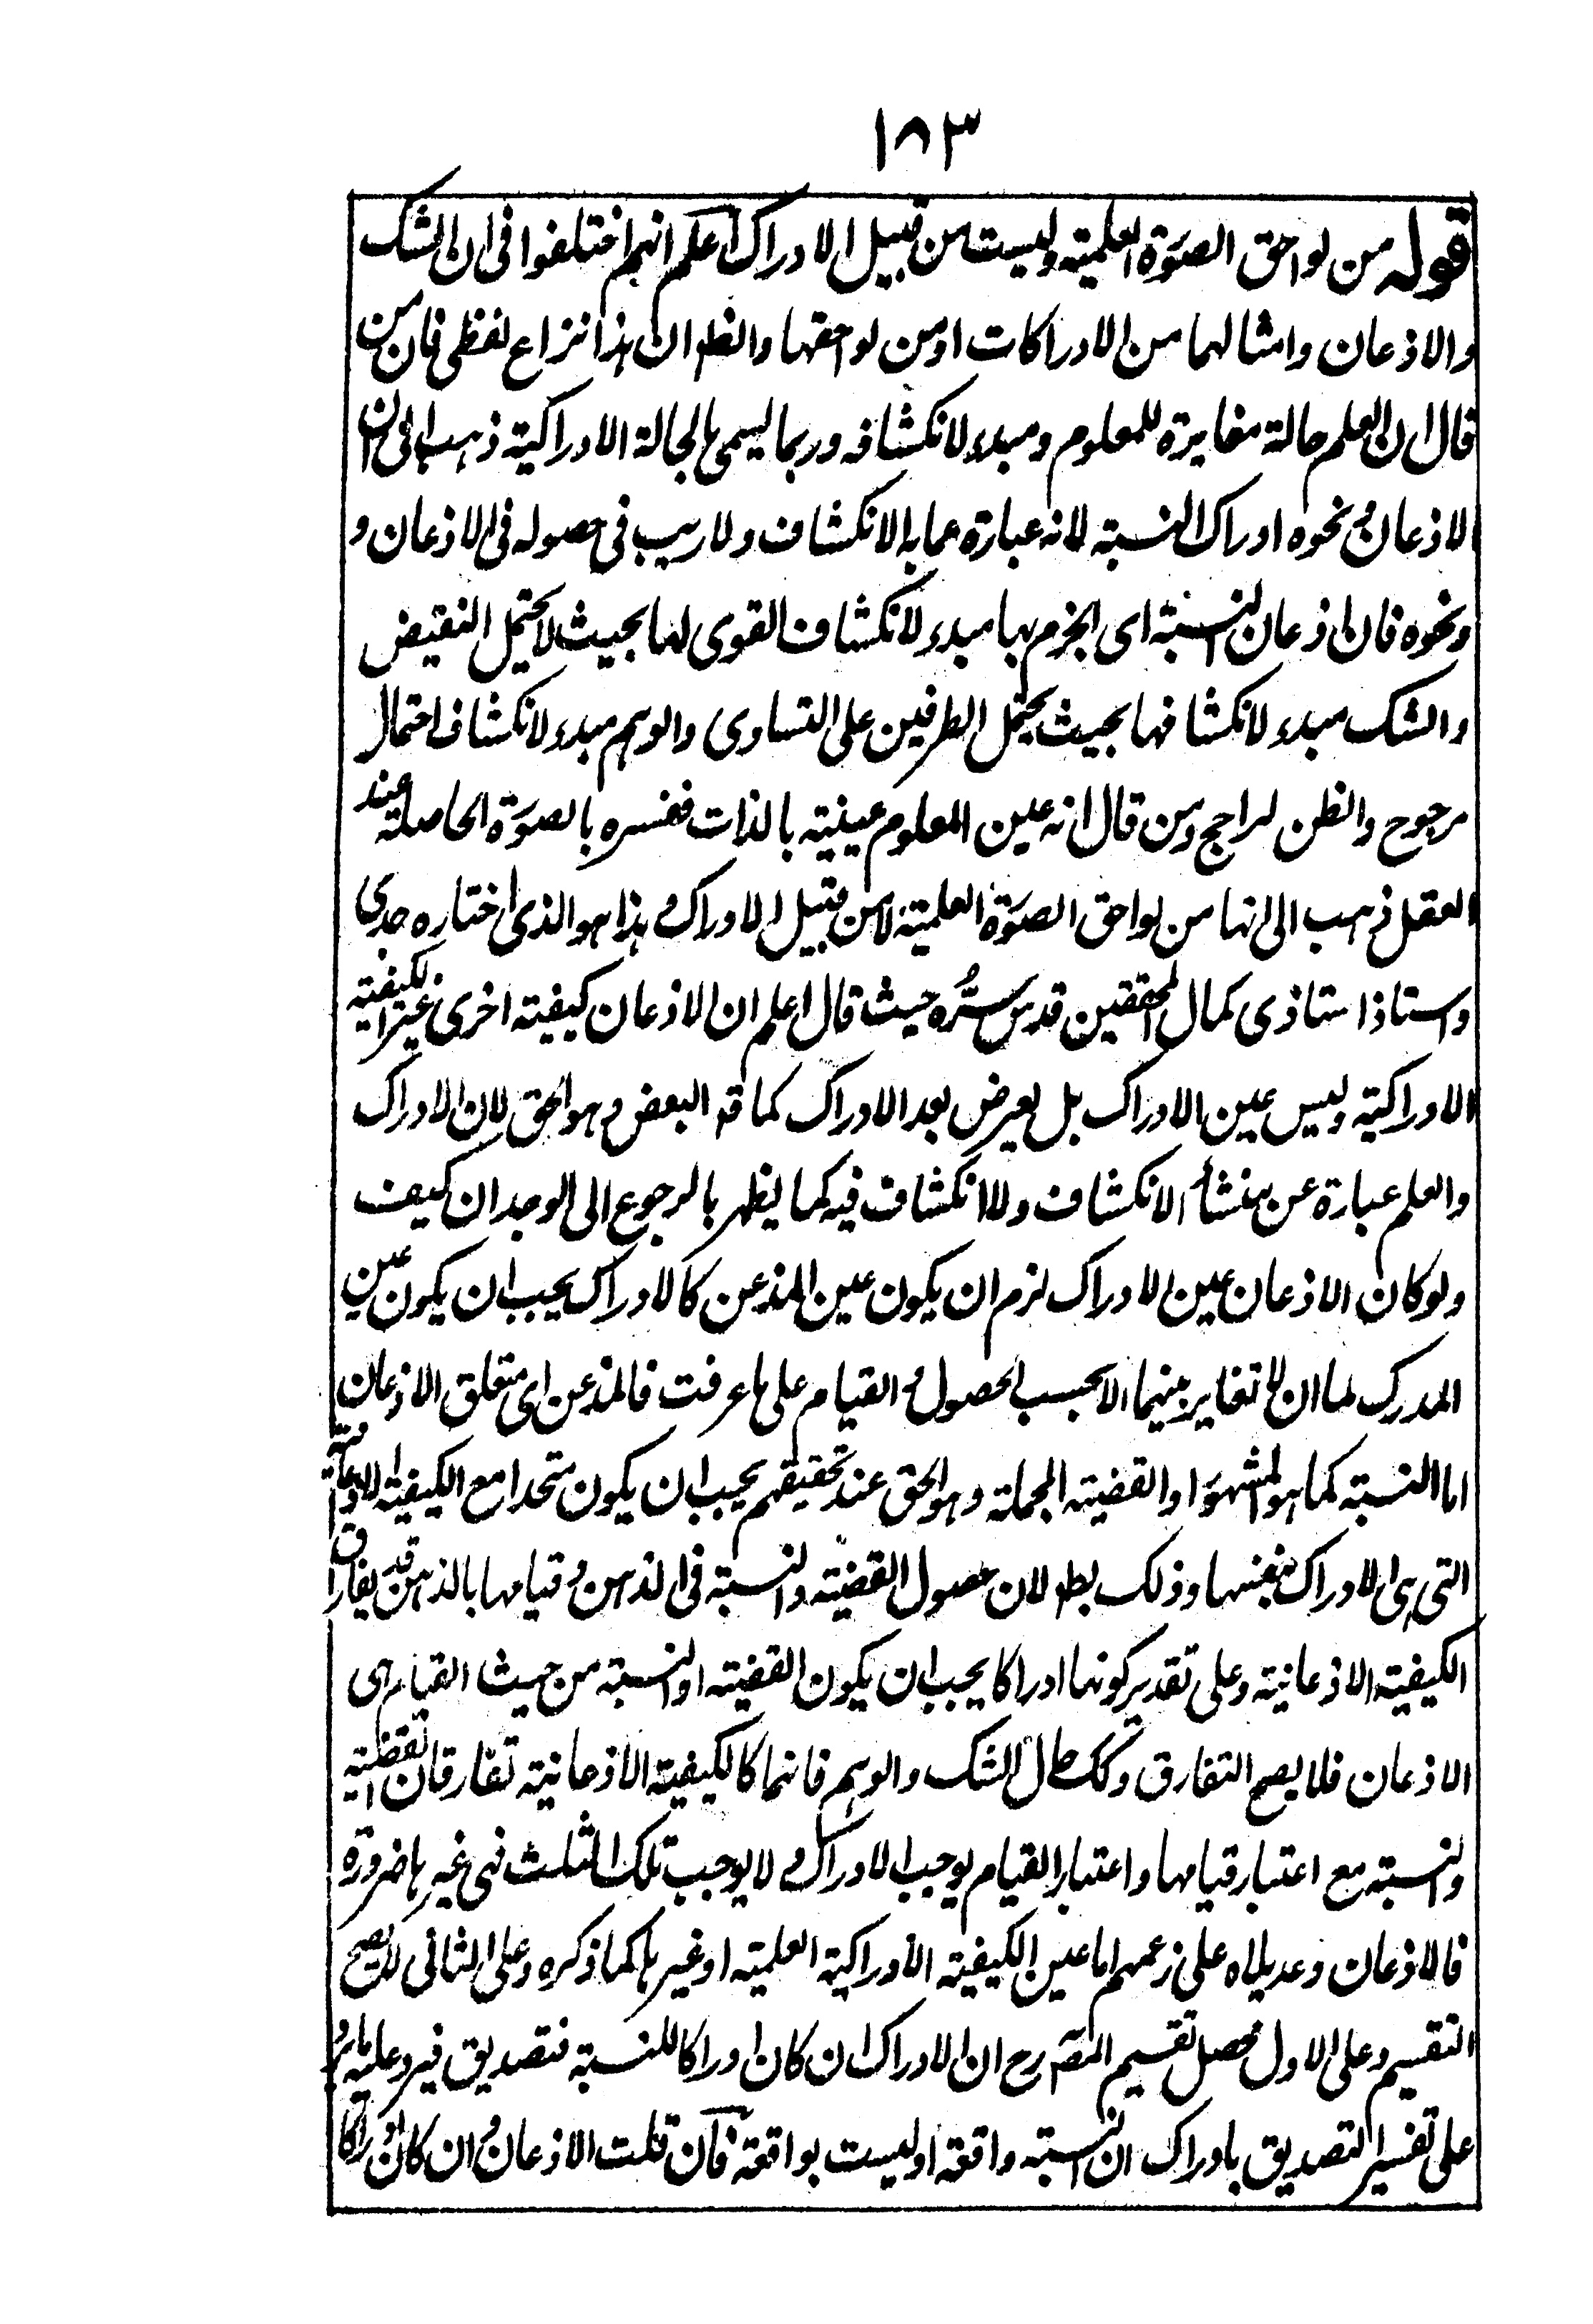 ١٨٣
قوله من لواحق الصورة العلمية وليست من قبيل الادراك اعلم انهم اختلفوا فى ان الشك
والاذعان وامثالهما من الادراكات او من لواحقها والظ ان هذا نزاع لفظى فان من
قال ان العلم حالة مغايرة للمعلوم ومبدء لانكشافه وربما يسمى بالحالة الادراكية ذهب الى ان
الاذعان ونحوه ادراك النسبة لانه عبارة عما به الانكشاف ولا ريب فى حصوله فى الاذعان و
ونحوه فان اذعان النسبة اى الجزم بها مبدء لانكشاف القوى لها بحيث لا يحتمل النقيض
والشك مبدء لانكشافها بحيث يحتمل الطرفين على التساوى والوهم مبدء لانكشاف احتمال
مرجوح والظن لراجح ومن قال انه عين المعلوم عينية بالذات ففسره بالصورة الحاصلة عند
العقل ذهب الى انها من لواحق الصورة العلمية لا من قبيل الادراك وهذا هو الذى اختاره جدى
واستاذ استاذى كمال المحققين قدس سره حيث قال اعلم ان الاذعان كيفية اخرى غير الكيفية
الادراكية وليس عين الادراك بل يعرض بعد الادراك كما قه البعض وهو الحق لان الادراك
والعلم عبارة عن منشأ الانكشاف ولا انكشاف فيه كما يظهر بالرجوع الى الوجدان كيف
ولو كان الاذعان عين الادراك لزم ان يكون عين المذعن كالادراك يجب ان يكون عين
المدرك لما ان لا تغاير بينهما الا بحسب الحصول والقيام على ما عرفت فالمذعن اى متعلق الاذعان
اما النسبة كما هو المشهور او القضية المجملة وهو الحق عند تحقيقهم يجب ان يكون متحدا مع الكيفية الاذعانية
التى هى الادراك بنفسها وذلك بط لان حصول القضية والنسبة فى الذهن وقيامها بالذهن قد يفارق
الكيفية الاذعانية وعلى تقدير كونها ادراكا يجب ان يكون القضية او النسبة من حيث القيام هى
الاذعان فلا يصح التفارق وكك حال الشك والوهم فانهما كالكيفية الاذعانية تفارقان القضية
والنسبة مع اعتبار قيامها واعتبار القيام يوجب الادراك ولا يوجب تلك الثلث فهى غيرها ضرورة
فالاذعان وعديلاه على زعمهم اما عين الكيفية الادراكية العلمية او غيرها كما ذكره وعلى الثانى لا يصح
التقسيم وعلى الاول محصل تقسيم المصـ رح ان الادراك ان كان ادراكا للنسبة فتصديق فيرد عليه ما يرد
على تفسير التصديق بادراك ان النسبة واقعة او ليست بواقعة فان قلت الاذعان وان كان ادراكا